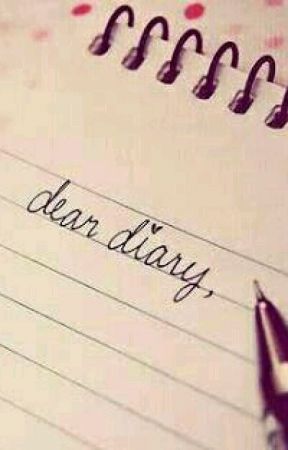 dear diary,